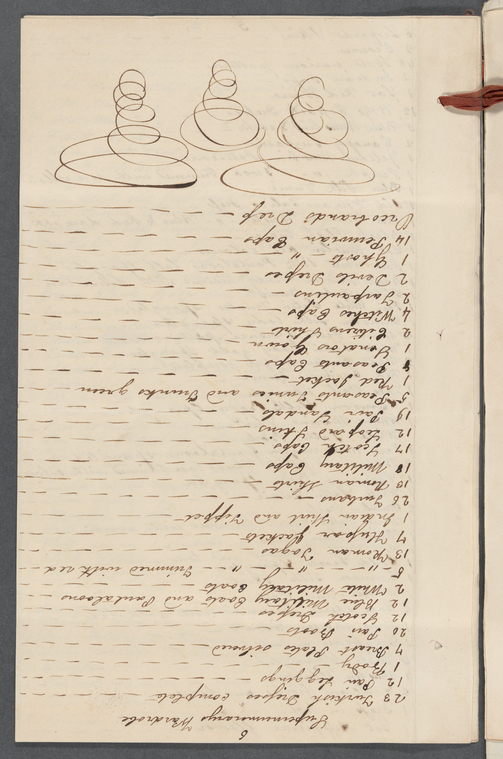 6
Supernumerarys Wardrobe
23 Turkish Dresses complete
12 Pair Leggings
1 Body
7 Breast Plates silvered
20 Pair Boots
12 Scotch Dresses
12 Blue Military Coats and Pantaloons
2 White Military Coats
5 " " " Trimmed with red
13 Roman Togas
7 Hussar Jackets
1 Indian Shirt and Tippet
26 Turbans
10 Roman Shirts
18 Military Caps
17 Scotch Caps
12 Leopard Skins
19 Pair Sandals
5 Peasants Tunics and Trunks green
1 Red Jacket
Peasants Caps
1 Senators Gown
2 Citizens Shirts
4 Witches Caps
2 Tarpaulins
2 Devils Dresses
1 Ghosts "
14 Peruvian Caps
Dress